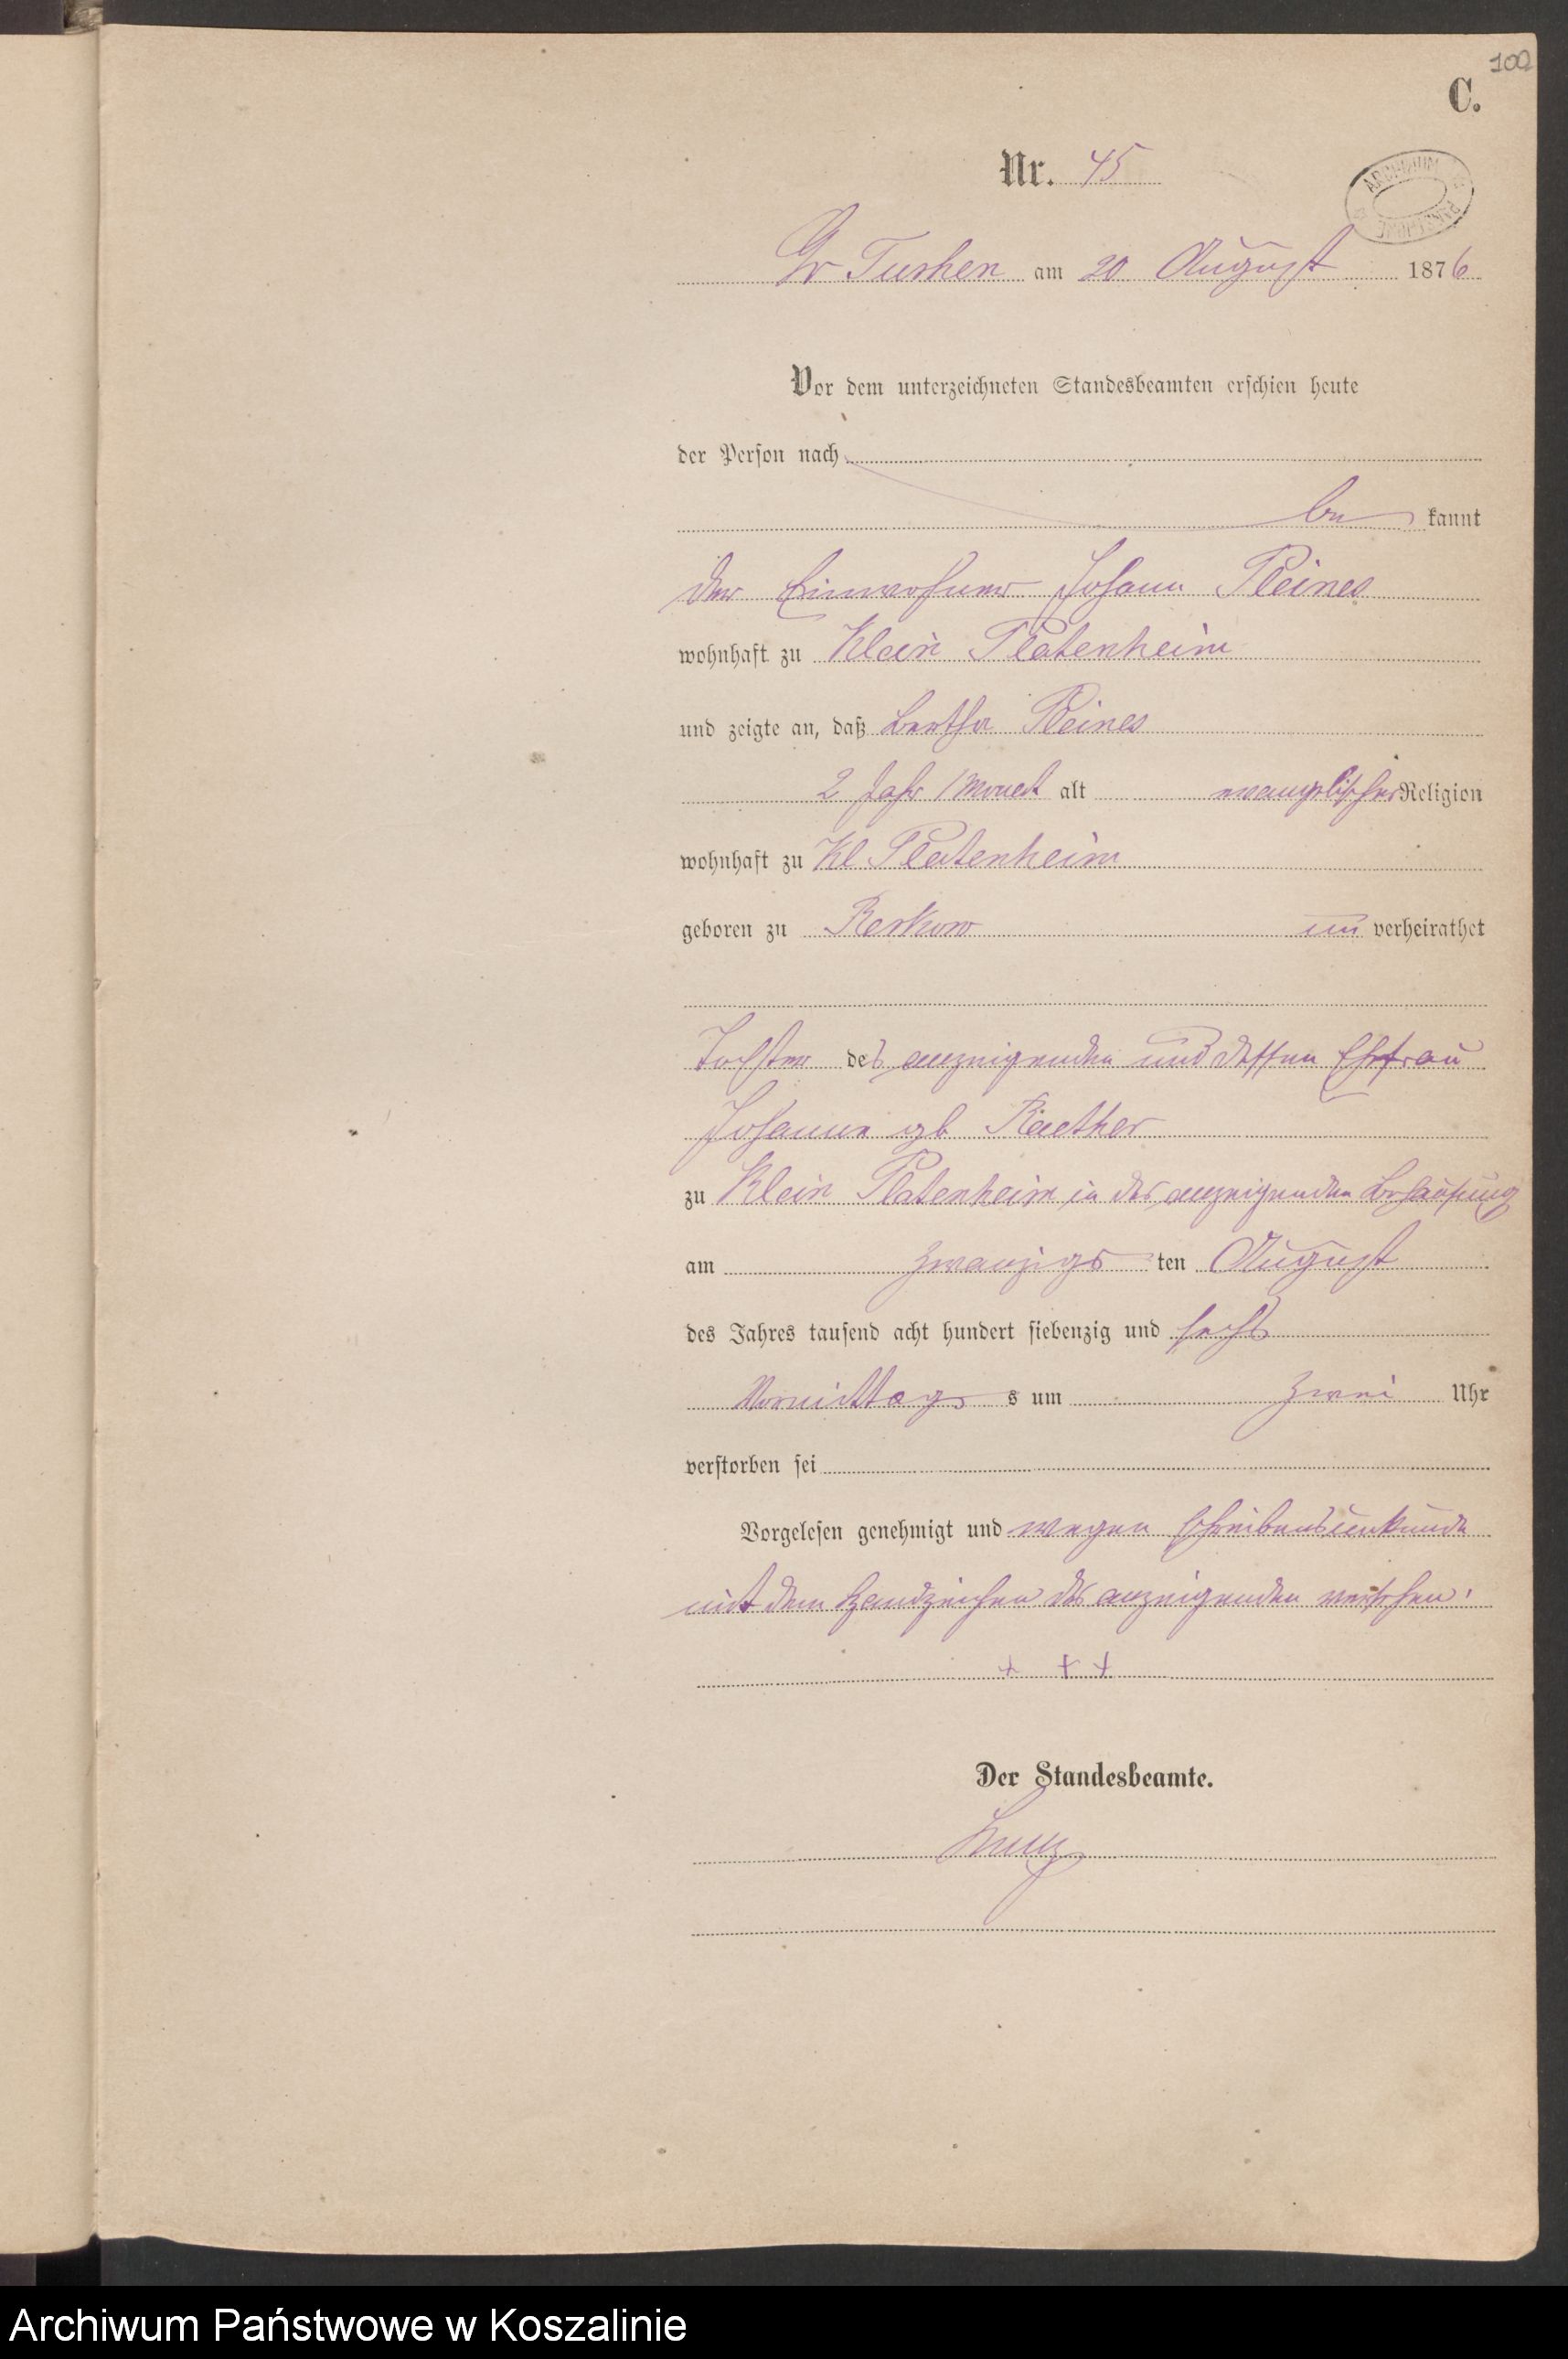 100
C.
Nr. 45
ARCHIWUM PAŃSTWOWE
Gr Tuchen am 20 August 1876
Vor dem unterzeichneten Standesbeamten erschien heute
der Person nach
be kannt
der Einwohner Johann
wohnhaft zu Klein Platenheim
und zeigte an, daß Bertha
2 Jahr 1 Monat alt evangelischer Religion
wohnhaft zu Kl Platenheim
geboren zu un verheirathet
Tochter des anzeigenden und dessen Ehefrau
Johanna gb Raether
zu Klein Platenheim in des anzeigenden Behausung
am zwanzigs ten August
des Jahres tausend acht hundert siebenzig und sechs
s um zwei Uhr
verstorben sei
Vorgelesen genehmigt und wegen Schreibensunkunde
mit dem Handzeichen des anzeigenden versehen.
+ + +
Der Standesbeamte.
Archiwum Państwowe w Koszalinie